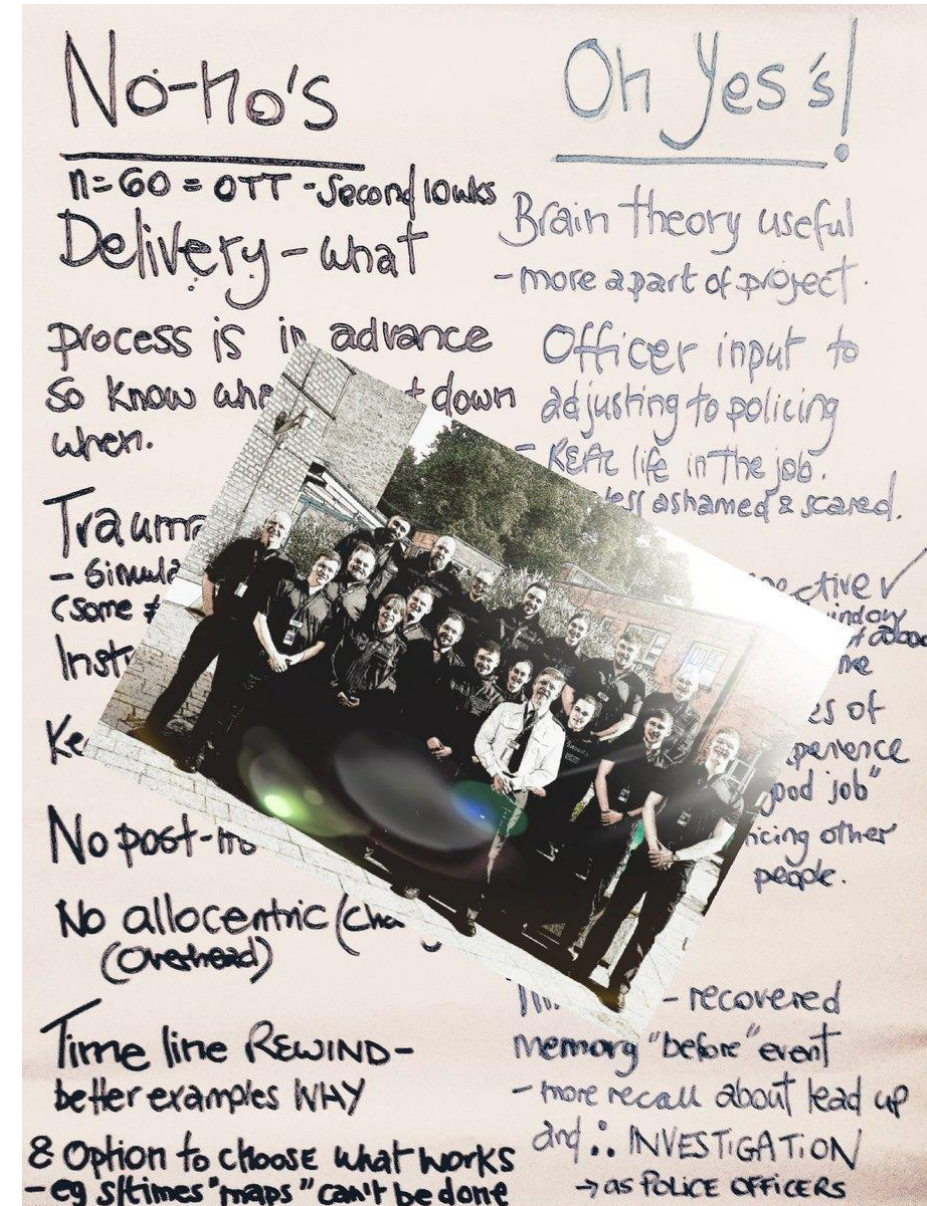 No-no's
n=60 = OTT - Second 10wks
Delivery - what
process is in advance
So know down
when.
Trauma
- Simula
(some ≠
Instr
Ke
No post-
No allocentric (cha
(Overhead)
Time line REWIND -
better examples WHY
& Option to choose what works
- eg s/times "maps" can't be done
Oh Yes's!
Brain theory useful
- more a part of project.
Officer input to
adjusting to policing
- REAL life in the job.
less ashamed & scared.
ctive ✓
indow
me
es of
perience
good job"
ncing other
people.
- recovered
memory "before" event
- more recall about lead up
and ∴ INVESTIGATION
→ as POLICE OFFICERS